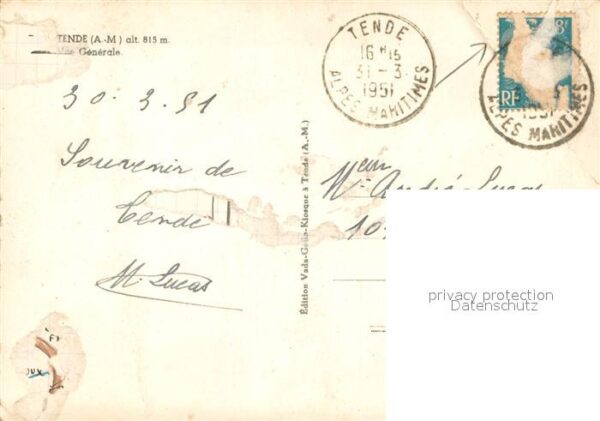 TENDE (A.-M.) alt. 815 m.
Vue Générale.
TENDE
16 H 15
31 - 3
1951
ALPES MARITIMES
8F
RF
1951
ALPES MARITIMES
30.3.51
Souvenir de
Tende
M. Lucas
Édition Vada-Gallo-Kiosque à Tende (A.-M.)
Mr André Lucas
10
privacy protection
Datenschutz